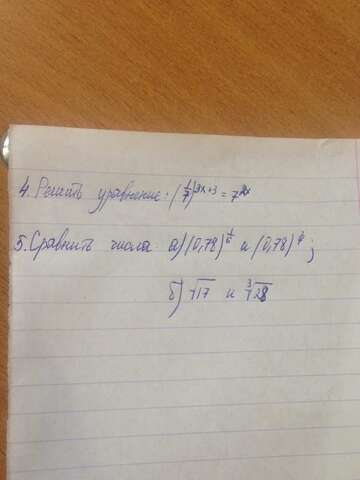 4. Решить уравнение: (1/7)^3x+3 = 7^2x
5. Сравнить числа: а) (0,78) и (0,78) ;
б) √17 и ∛28